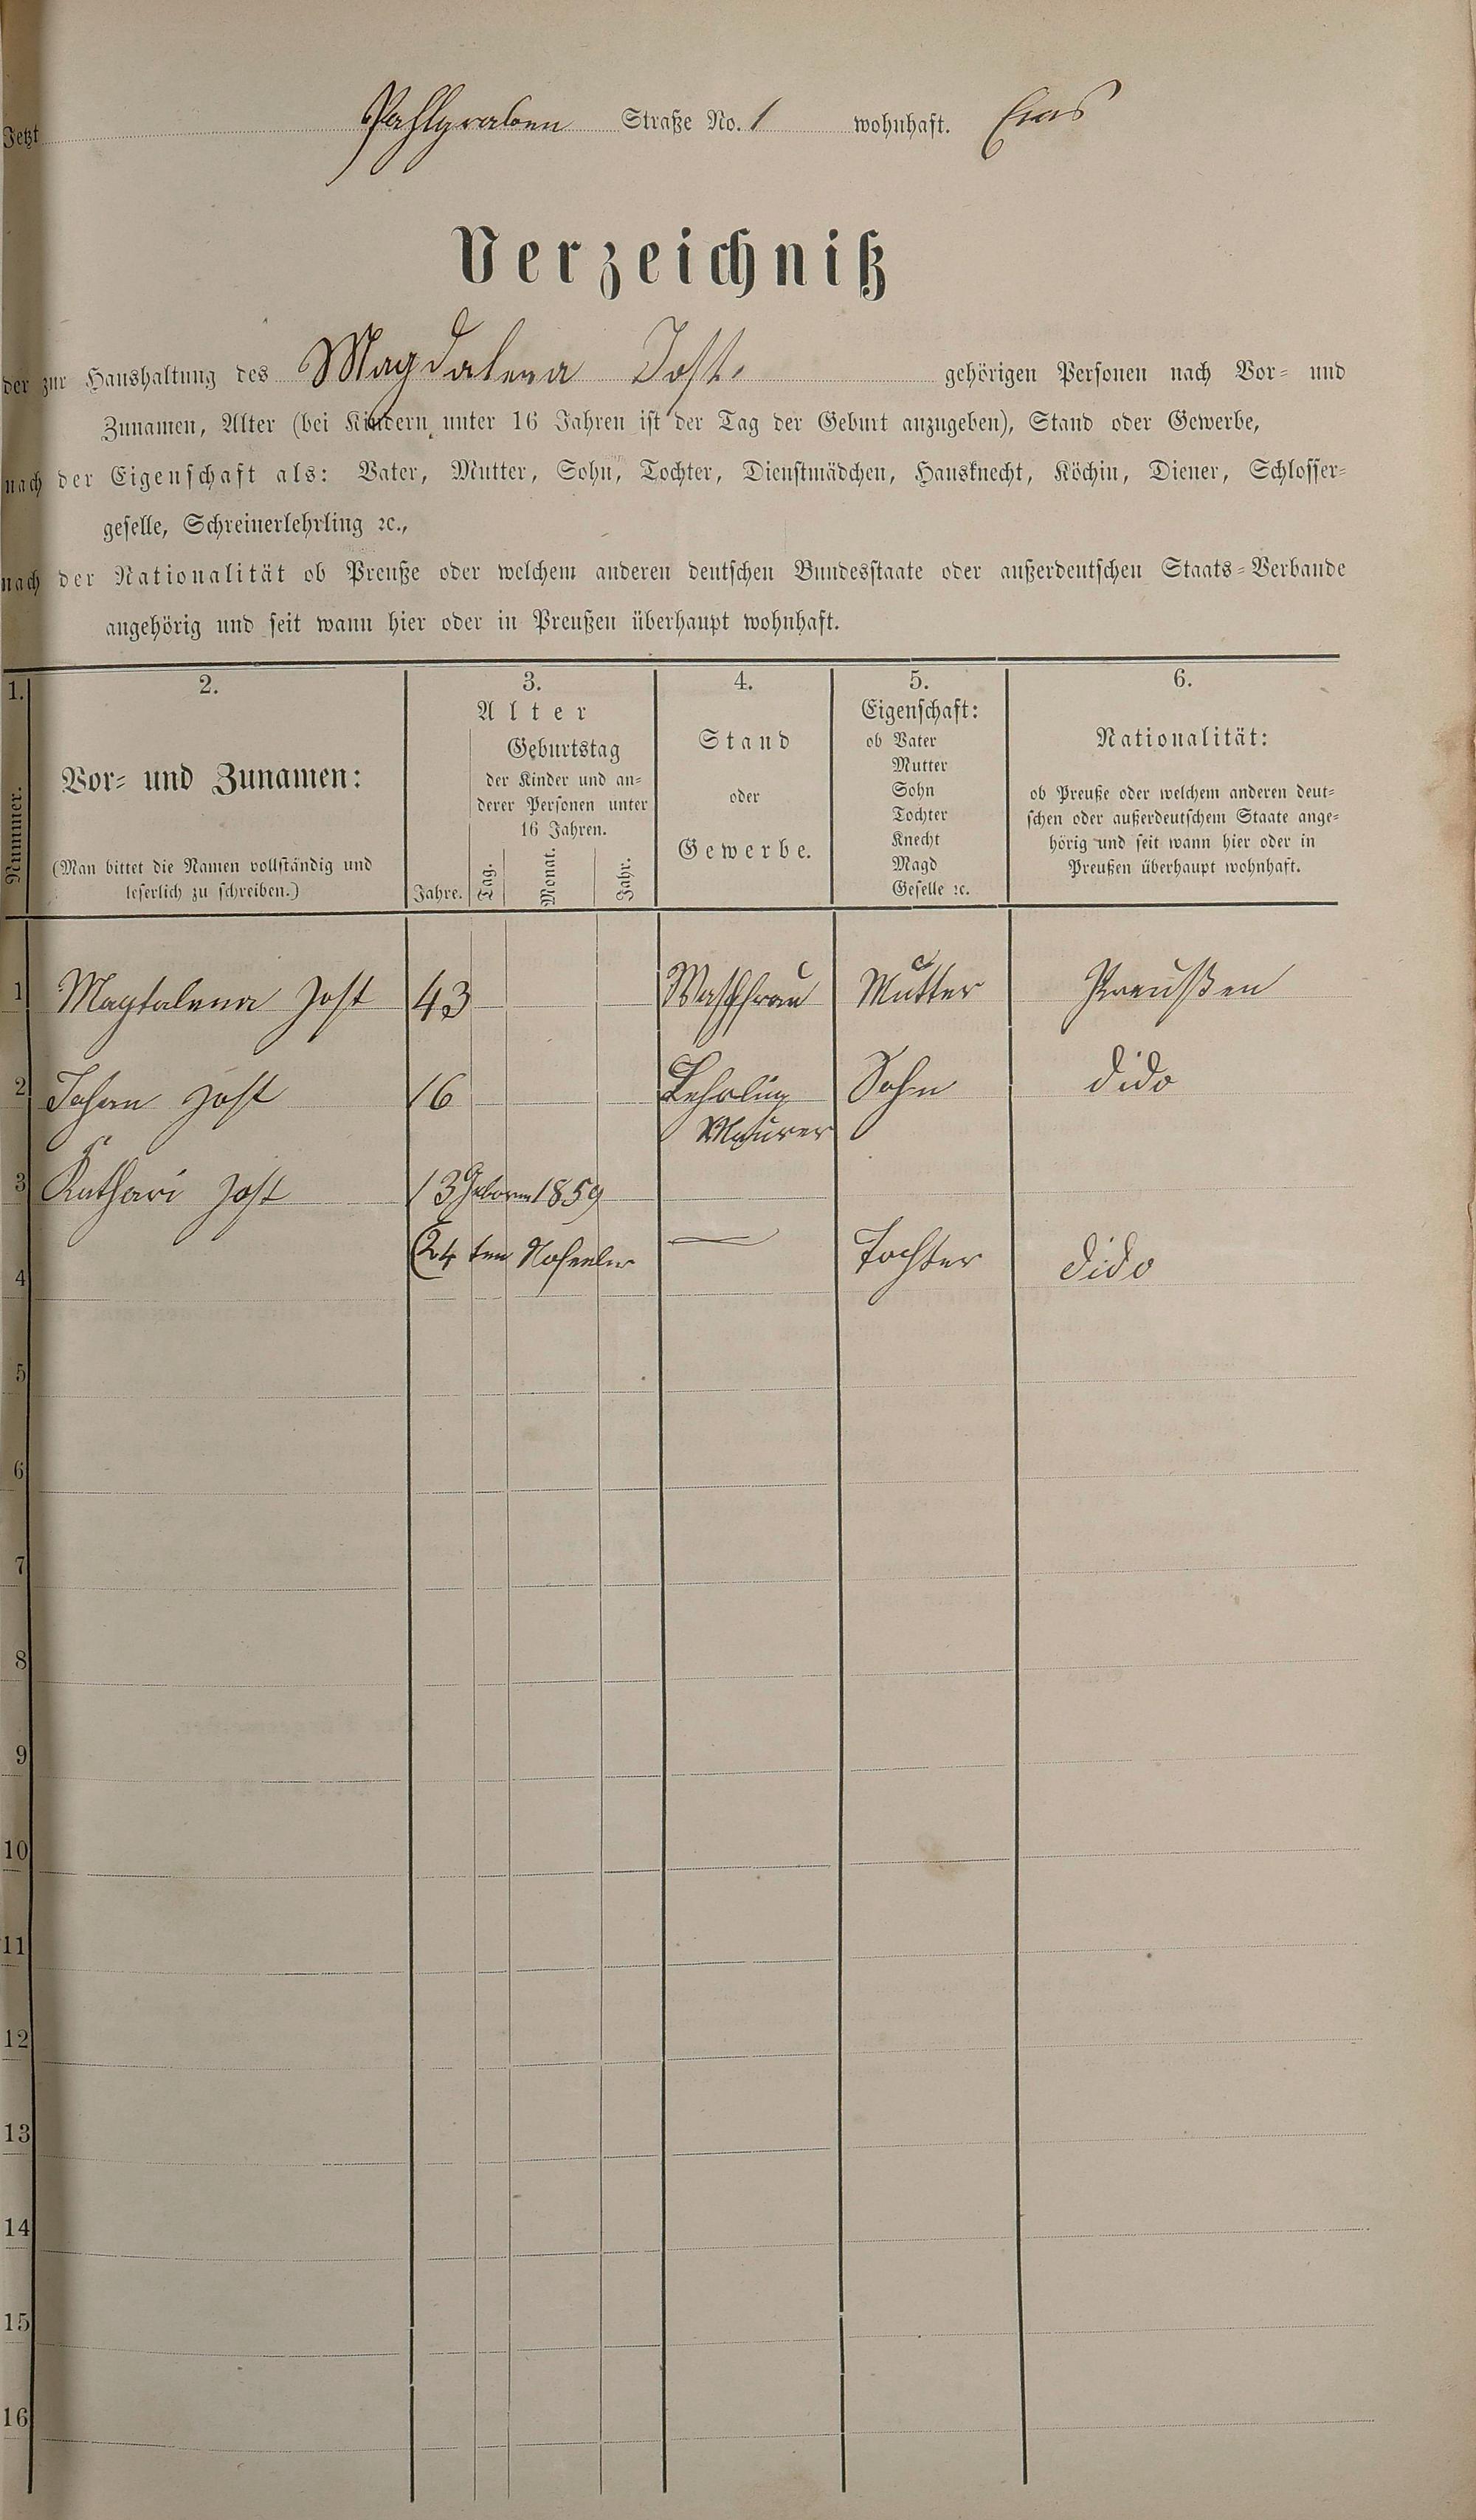 Jetzt Pfahlgraben Straße No. 1 wohnhaft. Ems
Verzeichniß
der zur Haushaltung des Magdalena Jost. gehörigen Personen nach Vor- und
Zunamen, Alter (bei Kindern unter 16 Jahren ist der Tag der Geburt anzugeben), Stand oder Gewerbe,
nach der Eigenschaft als: Vater, Mutter, Sohn, Tochter, Dienstmädchen, Hausknecht, Köchin, Diener, Schlosser-
geselle, Schreinerlehrling ꝛc.,
nach der Nationalität ob Preuße oder welchem anderen deutschen Bundesstaate oder außerdeutschen Staats-Verbande
angehörig und seit wann hier oder in Preußen überhaupt wohnhaft.
1.
Nummer.
2.
Vor- und Zunamen:
(Man bittet die Namen vollständig und
leserlich zu schreiben.)
3.
Alter
Geburtstag
der Kinder und an-
derer Personen unter
16 Jahren.
Jahre. Tag. Monat. Jahr.
4.
Stand
oder
Gewerbe.
5.
Eigenschaft:
ob Vater
Mutter
Sohn
Tochter
Knecht
Magd
Geselle ꝛc.
6.
Nationalität:
ob Preuße oder welchem anderen deut-
schen oder außerdeutschem Staate ange-
hörig und seit wann hier oder in
Preußen überhaupt wohnhaft.
1 Magtalena Jost 43 Waschfrau Mutter Preußen
2 Johan Jost 16 Lehrling Sohn dido
Maurer
3 Kathari Jost 13 geboren 1859
24 ten Tochter dido
4
5
6
7
8
9
10
11
12
13
14
15
16